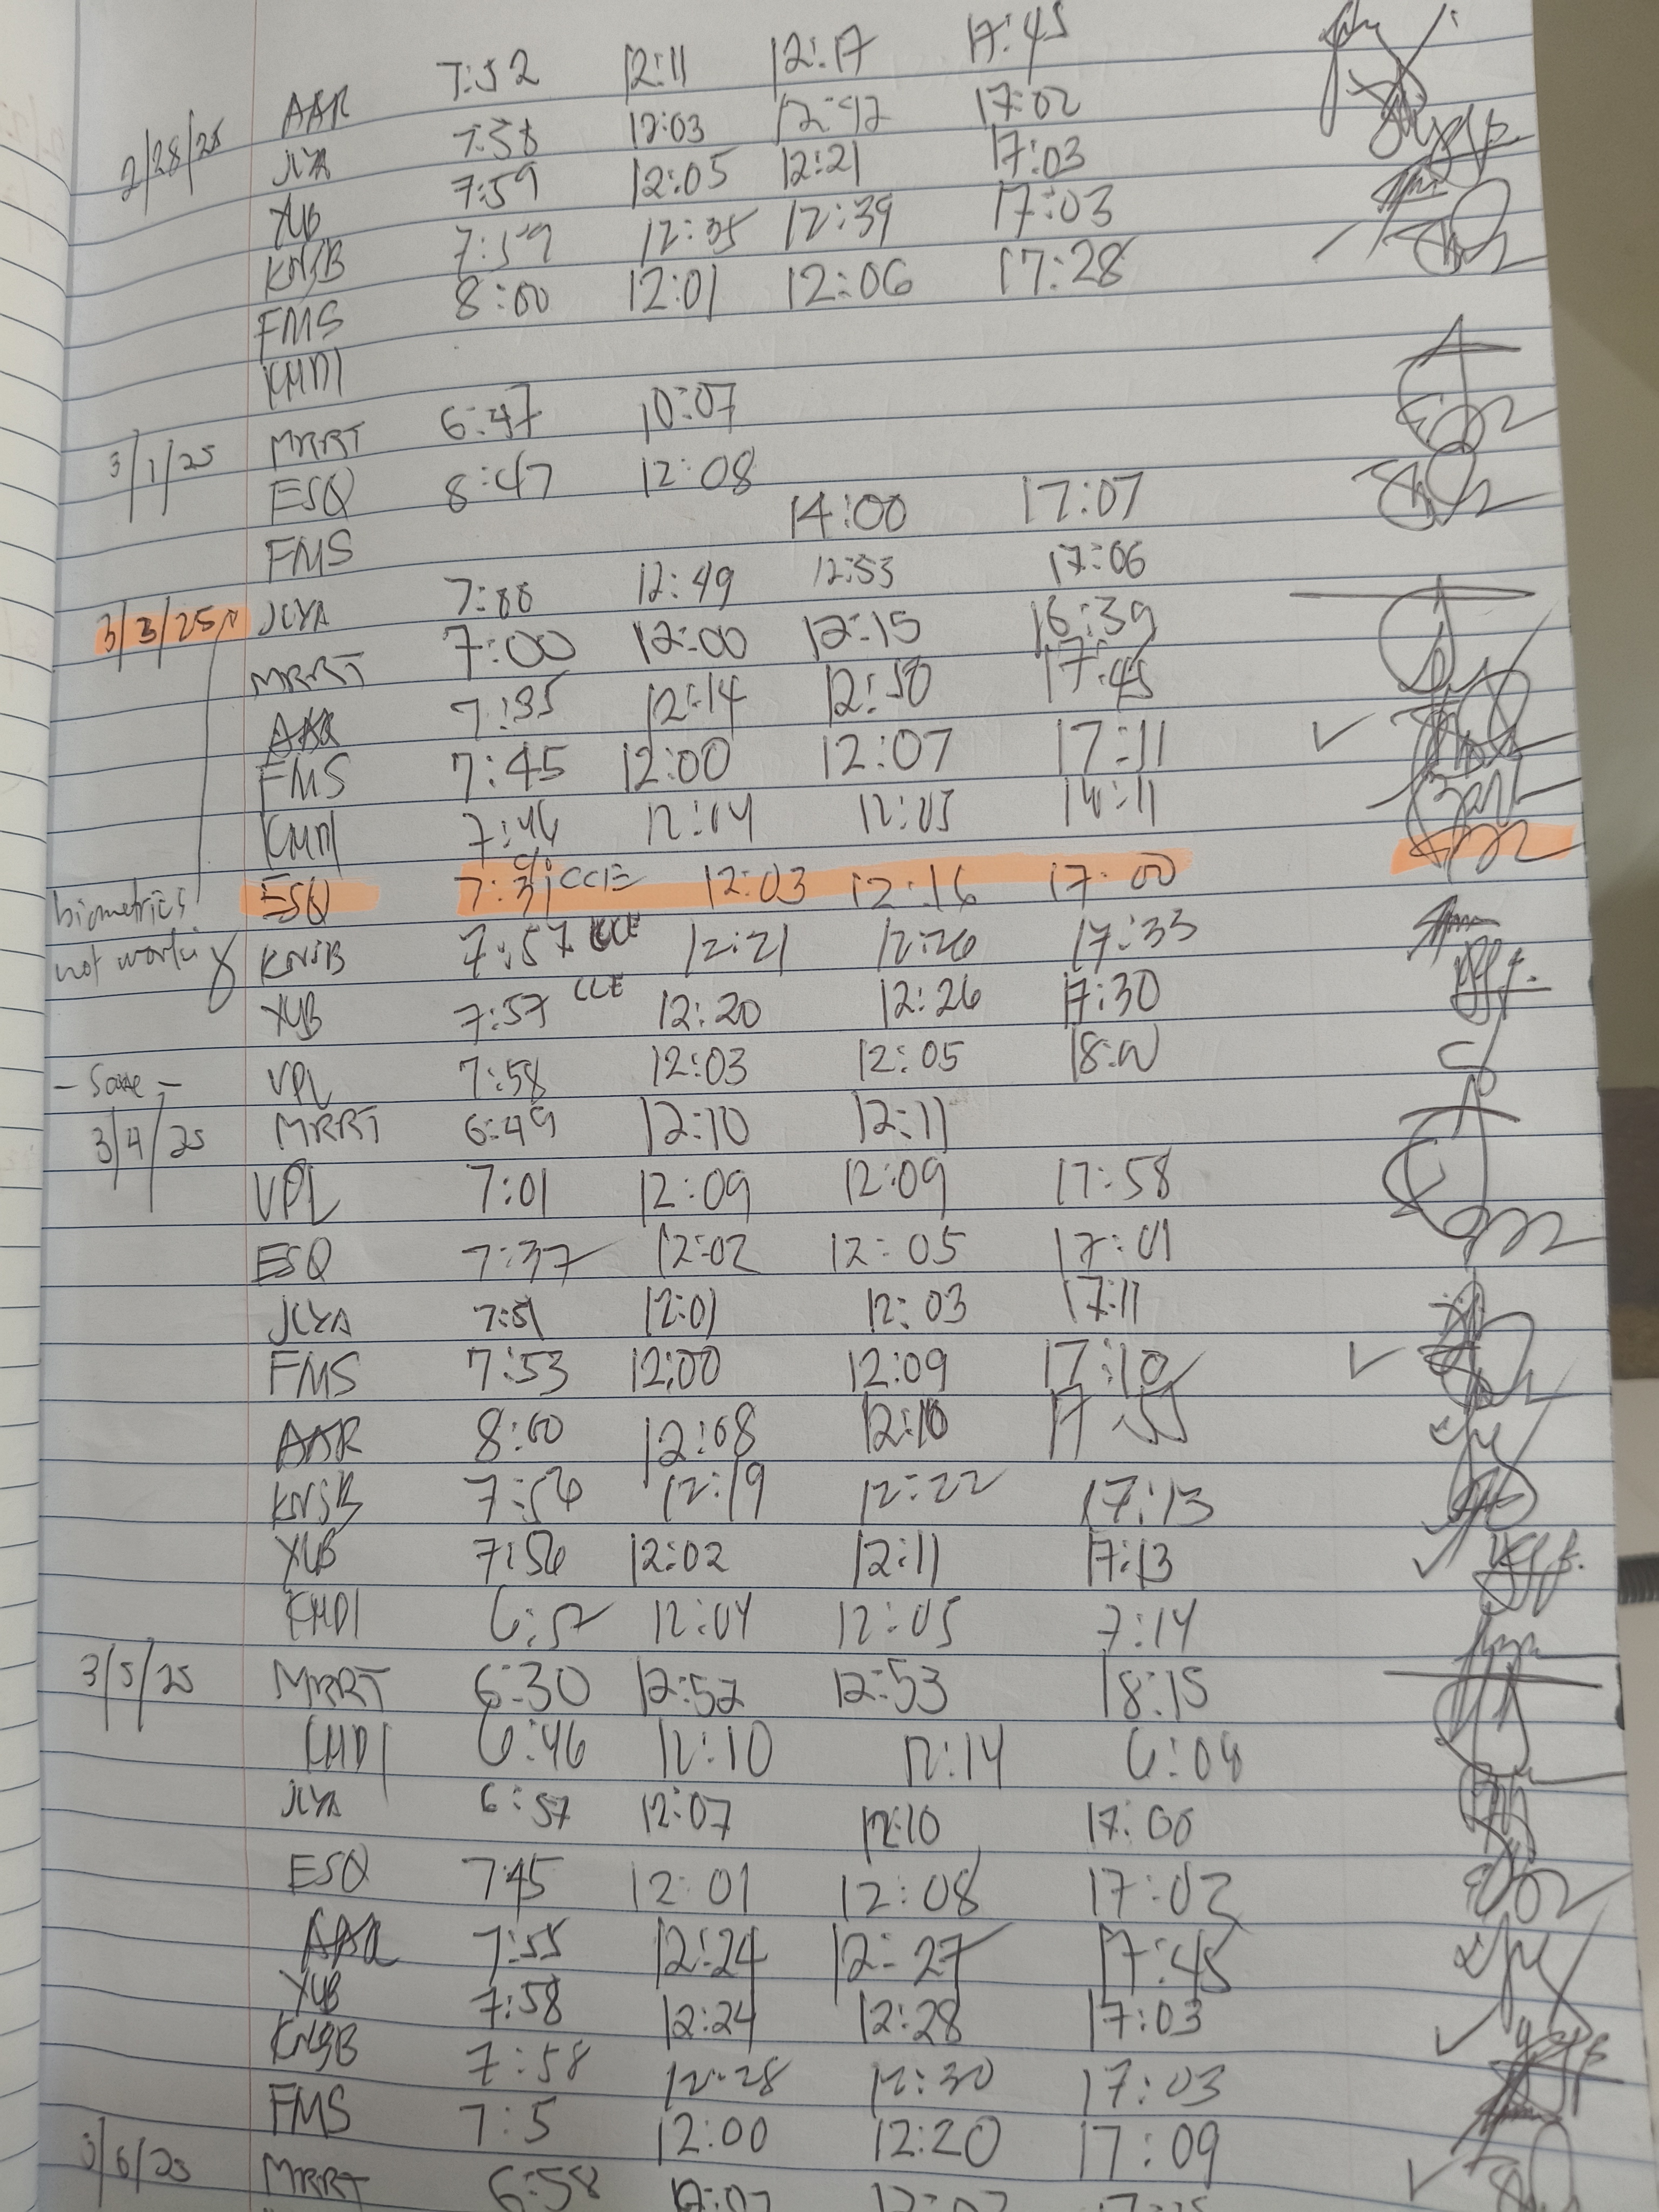 AAR 7:52 12:11 12:17 17:45
2/28/25 JLYA 7:58 12:03 12:42 17:02
YUB 7:59 12:05 12:21 17:03
KNSB 7:59 12:35 12:39 17:03
FMS 8:00 12:01 12:06 17:28
KHDI
3/1/25 MRRT 6:47 10:07
ESQ 8:47 12:08
FMS 14:00 17:07
3/3/25 JLYA 7:00 12:49 12:53 17:06
MRRT 7:00 12:00 12:15 16:39
AAR 7:35 12:14 12:50 17:45
FMS 7:45 12:00 12:07 17:11
KHDI 7:46 12:04 12:05
biometrics ESQ 7:31 CCIE 12:03 12:16 17:00
not working KNSB 7:57 12:21 12:26 17:33
YUB 7:57 12:20 12:26 17:30
- Same - VPL 7:58 12:03 12:05 18:00
3/4/25 MRRT 6:49 12:10 12:11
VPL 7:01 12:09 12:09 17:58
ESQ 7:37 12:02 12:05 17:01
JLYA 7:51 12:01 12:03 17:11
FMS 7:53 12:00 12:09 17:10
AAR 8:00 12:08 12:10 17:55
KNSB 7:56 12:19 12:22 17:13
YUB 7:56 12:02 12:11 17:13
KHDI 6:57 12:04 12:05 7:14
3/5/25 MRRT 6:30 12:52 12:53 18:15
KHDI 6:46 12:10 12:14 6:04
JLYA 6:57 12:07 12:10 17:00
ESQ 7:45 12:01 12:08 17:02
AAR 7:55 12:24 12:27 17:45
YUB 7:58 12:24 12:28 17:03
KNSB 7:58 12:28 12:30 17:03
FMS 7:5 12:00 12:20 17:09
3/6/25 MRRT 6:58